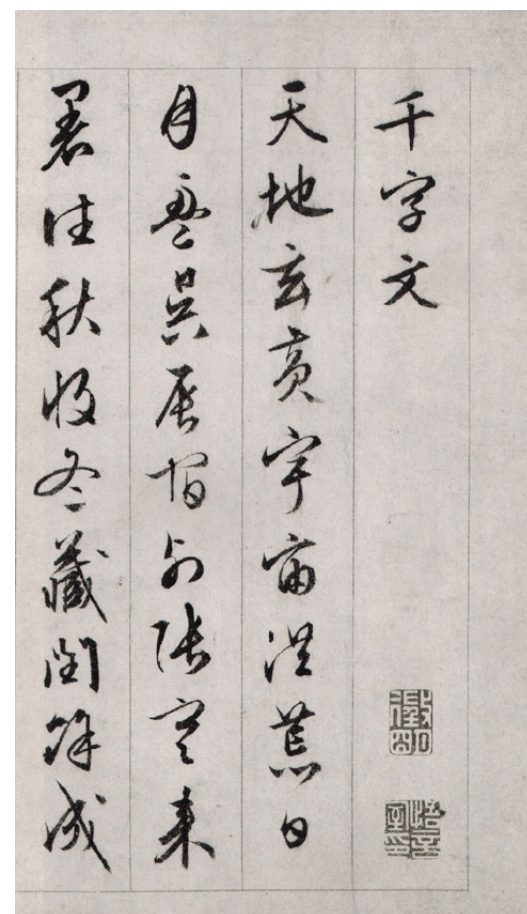 千字文
天地玄黃宇宙洪荒日
月盈昃辰宿列張寒来
暑往秋收冬藏閏餘成
徵明
悟言室印